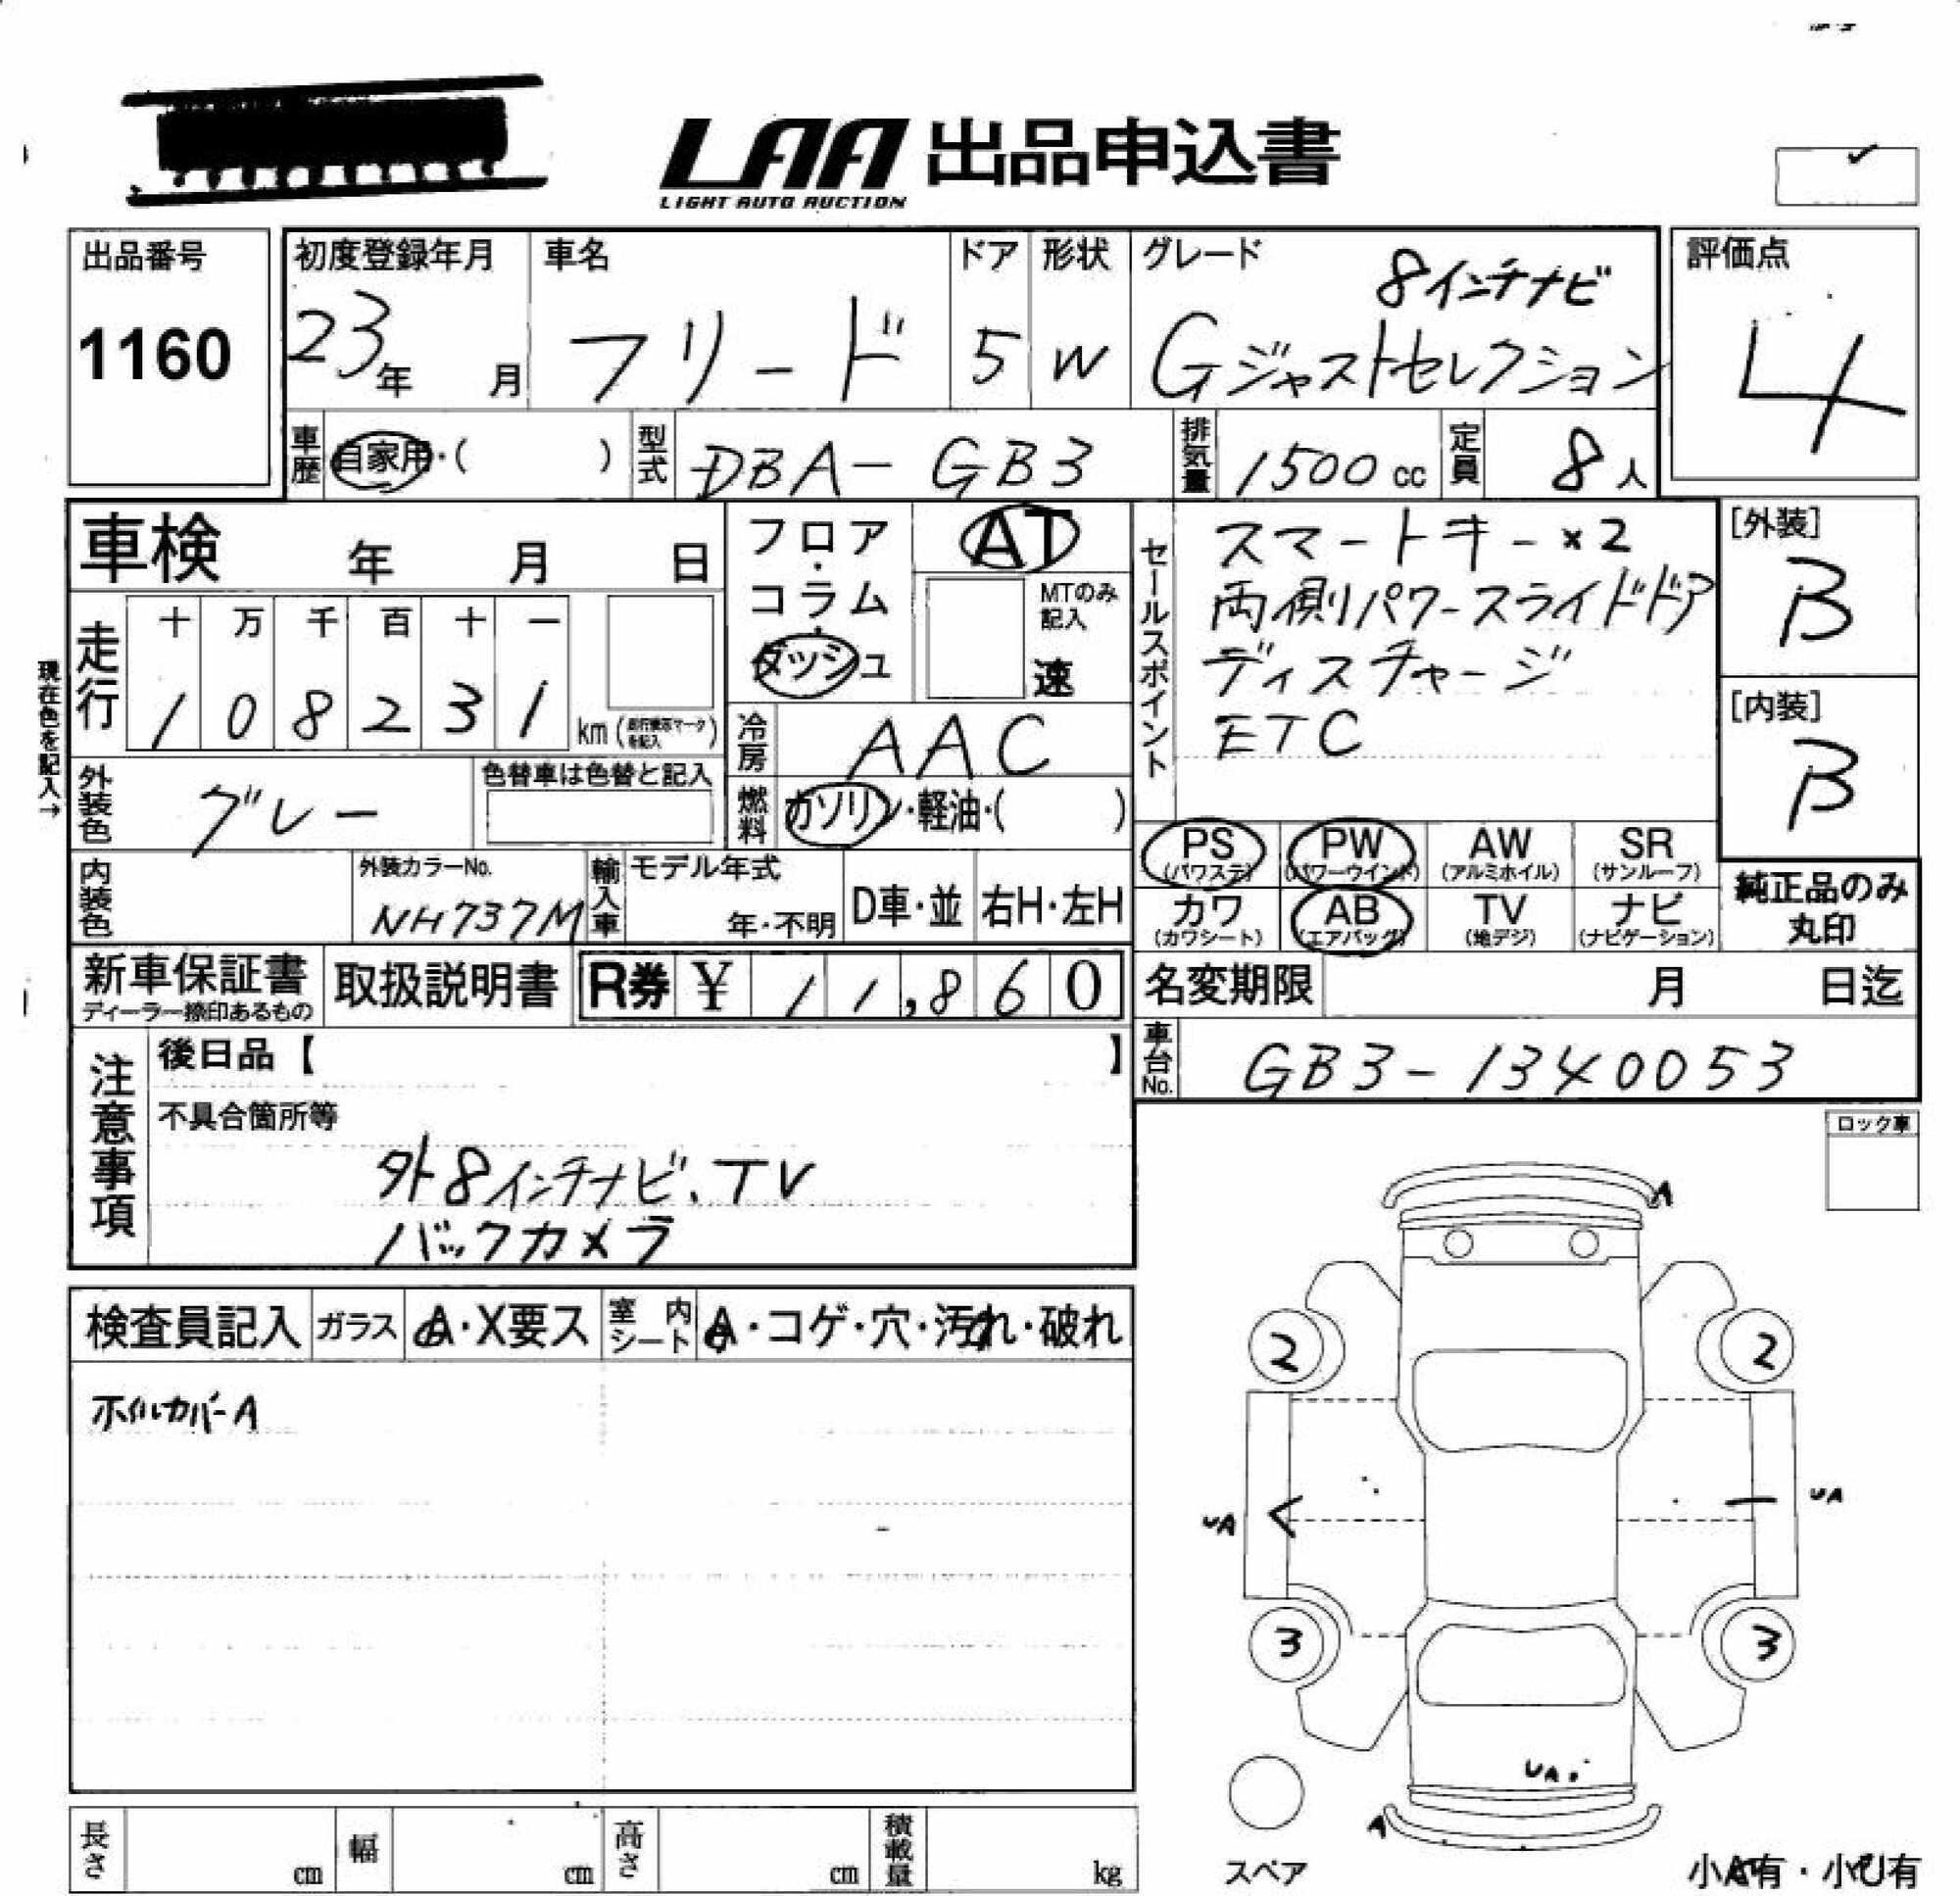 LAA 出品申込書
LIGHT AUTO AUCTION
出品番号
1160
初度登録年月
23年 月
車名
フリード
ドア
5
形状
W
グレード
8インチナビ
Gジャストセレクション
評価点
4
車歴
自家用・( )
型式
DBA- GB3
排気量
1500cc
定員
8人
車検 年 月 日
フロア・コラム・ダッシュ
AT
MTのみ記入
速
セールスポイント
スマートキー×2
両側パワースライドドア
ディスチャージ
ETC
[外装]
B
[内装]
B
現在色を記入→
走行
十 万 千 百 十 一
1 0 8 2 3 1 km
冷房
AAC
外装色
グレー
色替車は色替と記入
燃料
ガソリン・軽油・( )
PS
(パワステ)
PW
(パワーウインド)
AW
(アルミホイル)
SR
(サンルーフ)
カワ
(カワシート)
AB
(エアバッグ)
TV
(地デジ)
ナビ
(ナビゲーション)
純正品のみ
丸印
内装色
外装カラーNo.
NH737M
輸入車
モデル年式
年・不明
D車・並
右H・左H
新車保証書
取扱説明書
R券 ¥ 11,860
名変期限 月 日迄
車台No.
GB3-1340053
注意事項
後日品【 】
不具合箇所等
外8インチナビ、TV
バックカメラ
ロック車
検査員記入
ガラス
A・X要ス
室内シート
A・コゲ・穴・汚れ・破れ
ホイルカバーA
A
2
2
UA
UA
3
3
UA
A
スペア
小A有・小U有
長さ cm
幅 cm
高さ cm
積載量 kg